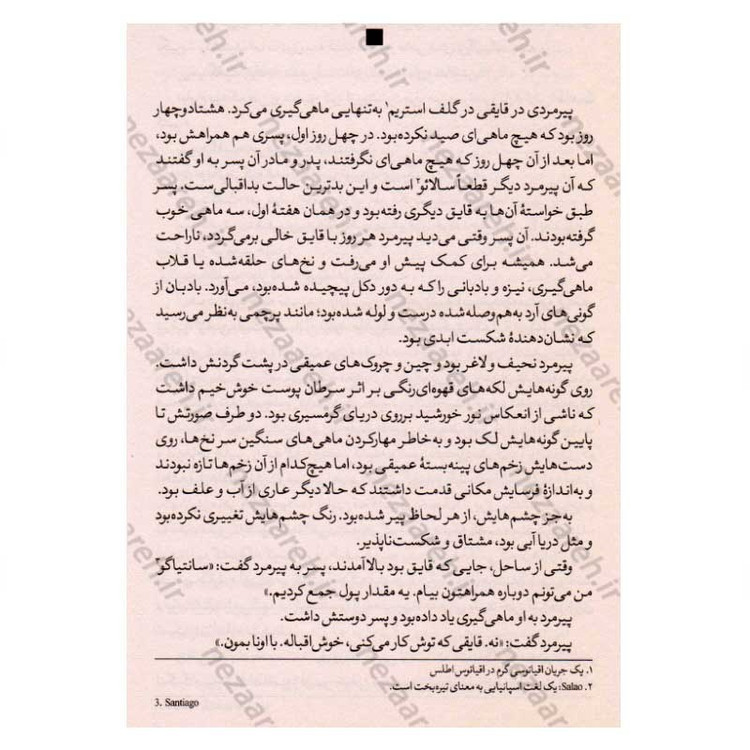 پیرمردی در قایقی در گلف استریم۱ به‌تنهایی ماهی‌گیری می‌کرد. هشتادوچهار
روز بود که هیچ ماهی‌ای صید نکرده‌بود. در چهل روز اول، پسری هم همراهش بود،
اما بعد از آن چهل روز که هیچ ماهی‌ای نگرفتند، پدر و مادر آن پسر به او گفتند
که آن پیرمرد دیگر قطعاً سالائو۲ است و این بدترین حالت بداقبالی‌ست. پسر
طبق خواستهٔ آن‌ها به قایق دیگری رفته‌بود و در همان هفتهٔ اول، سه ماهی خوب
گرفته‌بودند. آن پسر وقتی می‌دید پیرمرد هر روز با قایق خالی برمی‌گردد، ناراحت
می‌شد. همیشه برای کمک پیش او می‌رفت و نخ‌های حلقه‌شده یا قلاب
ماهی‌گیری، نیزه و بادبانی را که به دور دکل پیچیده شده‌بود، می‌آورد. بادبان از
گونی‌های آرد به‌هم‌وصله‌شده درست و لوله شده‌بود؛ مانند پرچمی به‌نظر می‌رسید
که نشان‌دهندهٔ شکست ابدی بود.
پیرمرد نحیف و لاغر بود و چین و چروک‌های عمیقی در پشت گردنش داشت.
روی گونه‌هایش لکه‌های قهوه‌ای‌رنگی بر اثر سرطان پوست خوش‌خیم داشت
که ناشی از انعکاس نور خورشید برروی دریای گرمسیری بود. دو طرف صورتش تا
پایین گونه‌هایش لک بود و به‌خاطر مهارکردن ماهی‌های سنگین سر نخ‌ها، روی
دست‌هایش زخم‌های پینه‌بستهٔ عمیقی بود، اما هیچ‌کدام از آن زخم‌ها تازه نبودند
و به‌اندازهٔ فرسایش مکانی قدمت داشتند که حالا دیگر عاری از آب و علف بود.
به‌جز چشم‌هایش، از هر لحاظ پیر شده‌بود. رنگ چشم‌هایش تغییری نکرده‌بود
و مثل دریا آبی بود، مشتاق و شکست‌ناپذیر.
وقتی از ساحل، جایی که قایق بود بالا آمدند، پسر به پیرمرد گفت: «سانتیاگو۳
من می‌تونم دوباره همراهتون بیام. یه مقدار پول جمع کردیم.»
پیرمرد به او ماهی‌گیری یاد داده‌بود و پسر دوستش داشت.
پیرمرد گفت: «نه. قایقی که توش کار می‌کنی، خوش‌اقباله. با اونا بمون.»
۱. یک جریان اقیانوسی گرم در اقیانوس اطلس
۲. Salao: یک لغت اسپانیایی به معنای تیره‌بخت است.
3. Santiago
nezaareh.ir